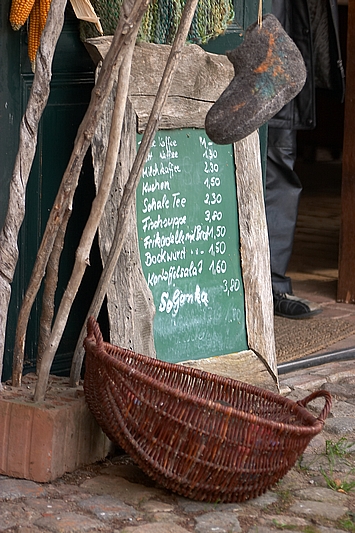 Kaffee 1,—
Milchkaffee 2,30
Kuchen 1,50
Schale Tee 2,30
Fischsuppe 3,80
Frikadelle mit Brot 1,50
Bockwurst 1,50
Kartoffelsalat 1,60
Soljanka 3,80